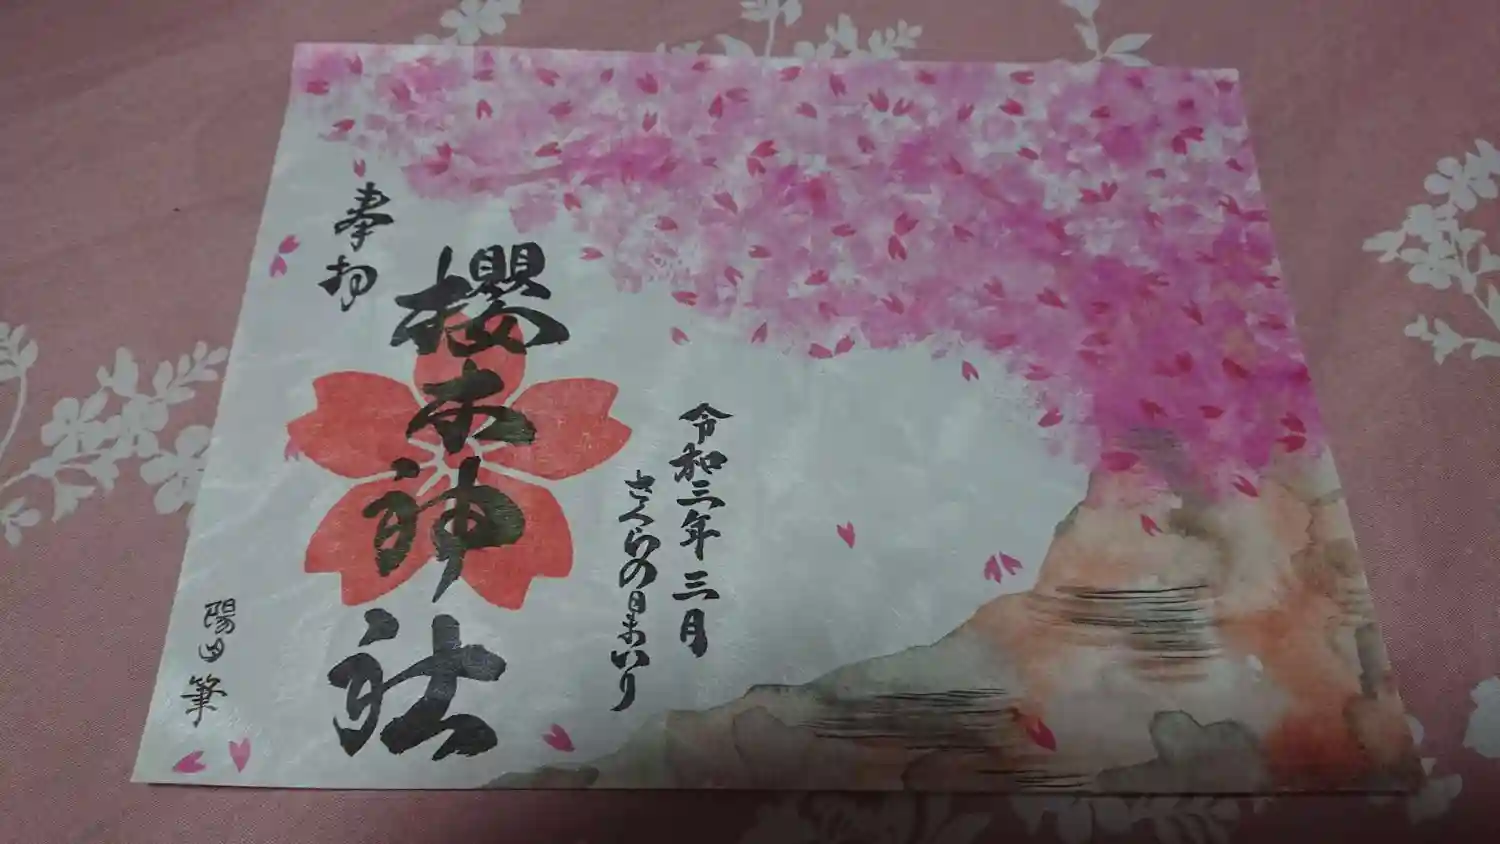 令和三年三月
さくらの日まいり
奉拝
櫻木神社
陽山筆